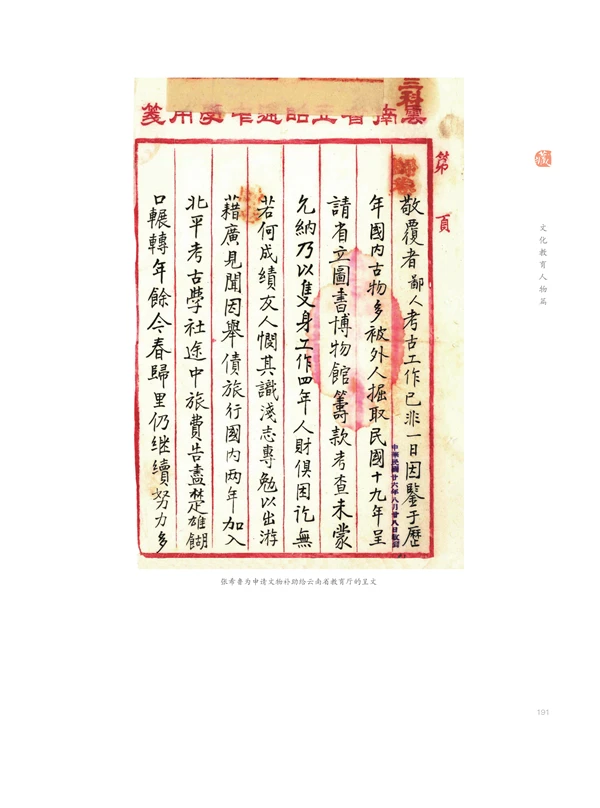 雲南省立昭通中學用箋
三科
第 頁
敬覆者鄙人考古工作已非一日因鑒于歷
年國內古物多被外人掘取民國十九年呈
請省立圖書博物館籌款考查未蒙
允納乃以隻身工作四年人財俱困訖無
若何成績友人憫其識淺志專勉以出游
藉廣見聞因舉債旅行國內两年加入
北平考古學社途中旅費告盡楚雄餬
口輾轉年餘今春歸里仍继續努力多
中華民國廿六年八月廿八日收到
文化教育人物篇
张希鲁为申请文物补助给云南省教育厅的呈文
191